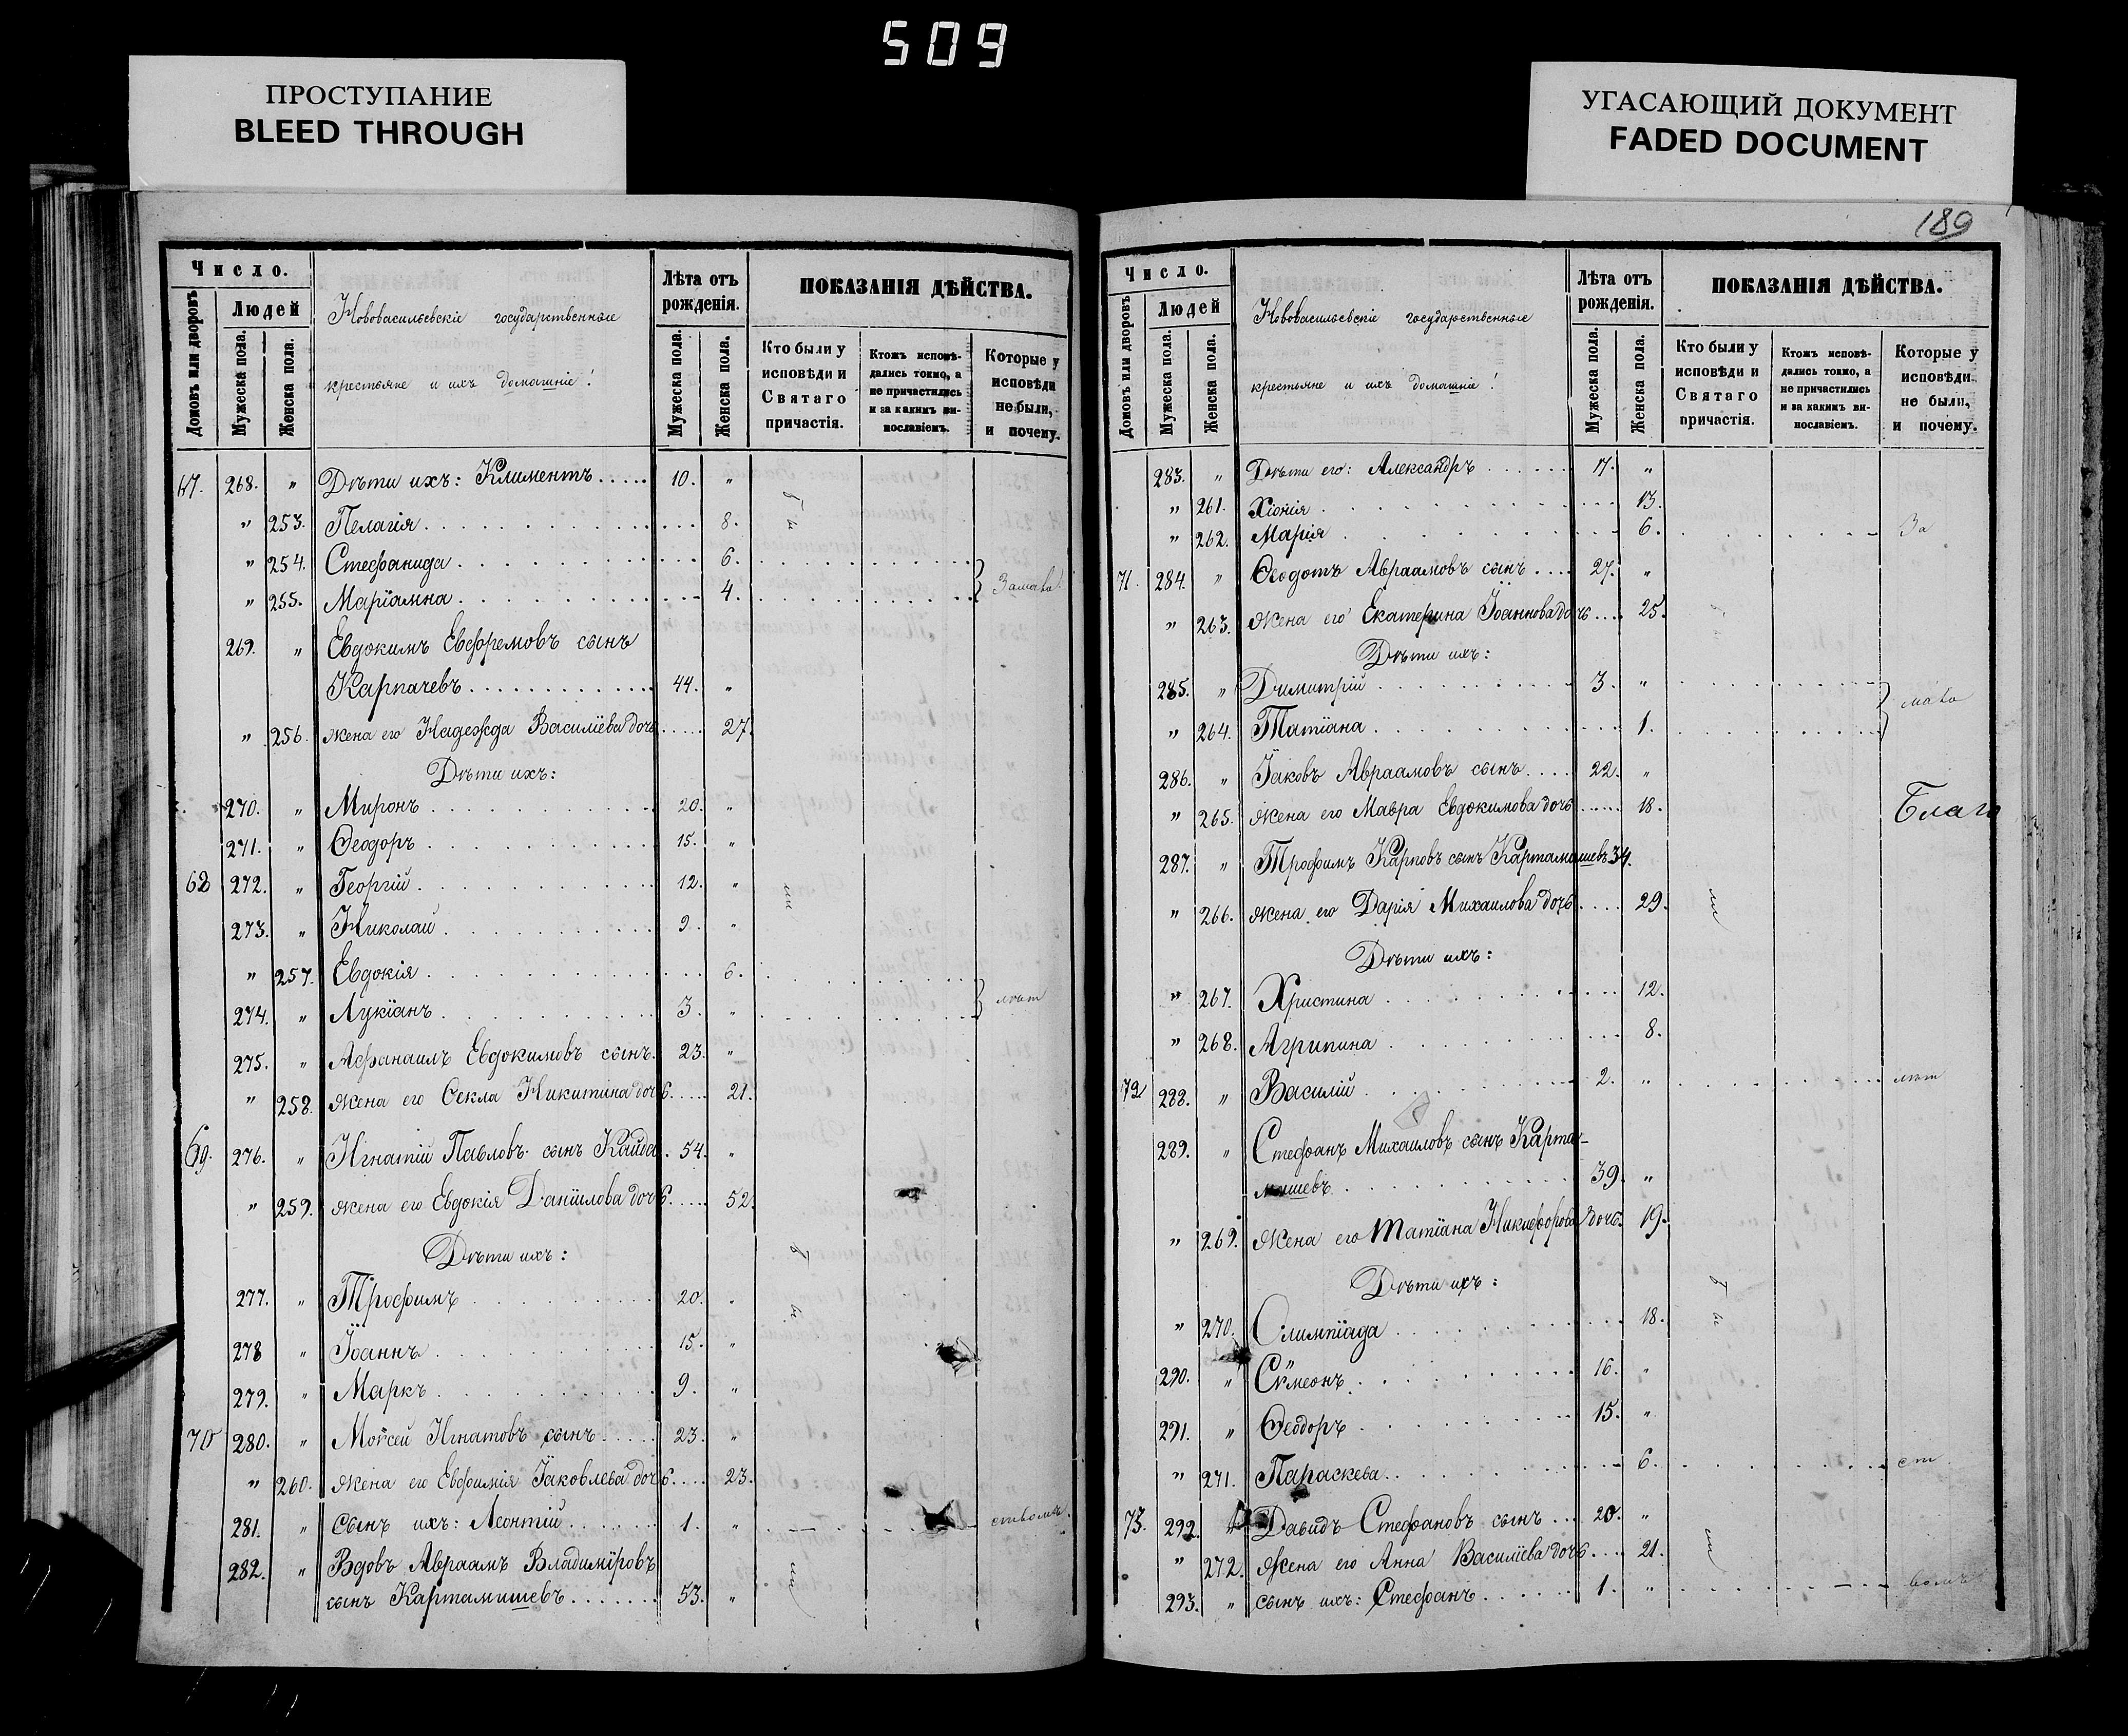 509
ПРОСТУПАНИЕ
BLEED THROUGH
УГАСАЮЩИЙ ДОКУМЕНТ
FADED DOCUMENT
Число.
Домовъ или дворовъ
Людей
Мужеска пола.
Женска пола.
Нововасильевскіе государственные
крестьяне и ихъ домашніе!
Лѣта отъ
рожденія.
Мужеска пола.
Женска пола.
ПОКАЗАНІЯ ДѢЙСТВА.
Кто были у
исповѣди и
Святаго
причастія.
Ктожъ исповѣ-
дались токмо, а
не причастились
и за какимъ ви-
нословіемъ.
Которые у
исповѣди
не были,
и почему.
67. 268. " Дѣти ихъ: Климентъ 10. "
" 253. Пелагія 8.
" 254. Стефанида 6.
" 255. Маріамна 4.
269. " Евдокимъ Евфремовъ сынъ
Карпачевъ 44. "
" 256. жена его Надежда Василіева дочь 27.
Дѣти ихъ:
270. " Миронъ 20. "
271. " Ѳеодоръ 15. "
68 272. " Георгій 12. "
273. " Николай 9. "
" 257. Евдокія 6.
274. " Лукіанъ 3. " лѣт
275. " Афанаилъ Евдокимовъ сынъ. 23. "
" 258. жена его Ѳекла Никитина дочь 21.
69. 276. " Игнатій Павловъ сынъ Кайда 54. "
" 259. жена его Евдокія Даніилова дочь 52.
Дѣти ихъ:
277. " Трофимъ 20. "
278 " Іоаннъ 15. "
279. " Маркъ 9. "
70 280. " Моѵсей Игнатовъ сынъ 23. "
" 260. жена его Евфимія Іаковлева дочь 23.
281. " Сынъ ихъ: Леонтій 1. " ствомъ.
282. " Вдовъ Авраамъ Владиміровъ
сынъ Картамишевъ 53. "
189
Число.
Домовъ или дворовъ
Людей
Мужеска пола.
Женска пола.
Нововасильевскіе государственные
крестьяне и ихъ домашніе!
Лѣта отъ
рожденія.
Мужеска пола.
Женска пола.
ПОКАЗАНІЯ ДѢЙСТВА.
Кто были у
исповѣди и
Святаго
причастія.
Ктожъ исповѣ-
дались токмо, а
не причастились
и за какимъ ви-
нословіемъ.
Которые у
исповѣди
не были,
и почему.
283. " Дѣти его: Александръ 17. "
" 261. Хіонія 13.
" 262. Марія 6. За
71. 284. " Ѳеодотъ Авраамовъ сынъ 27. "
" 263. жена его Екатерина Іоаннова дочь 25.
Дѣти ихъ:
285. " Димитрій 3. "
мало
" 264. Татіана 1.
286. " Іаковъ Авраамовъ сынъ 22. "
" 265. жена его Мавра Евдокимова дочь 18. Благо
287. " Трофимъ Карповъ сынъ Картамышевъ 34.
" 266. жена его Дарія Михаилова дочь 29.
Дѣти ихъ:
" 267. Христина 12.
" 268. Агрипина 8.
72 288. " Василій 2. " лѣт
289. " Стефанъ Михаиловъ сынъ Карта-
мышевъ 39. "
" 269. жена его Татіана Никифорова дочь 19.
Дѣти ихъ:
" 270. Олимпіада 18.
290. " Сѵмеонъ 16. "
291. " Ѳеодоръ 15. "
" 271. Параскева 6. ст
73. 292. Давидъ Стефановъ сынъ 20. "
" 272. жена его Анна Василіева дочь 21.
293. " сынъ ихъ: Стефанъ 1. " вомъ